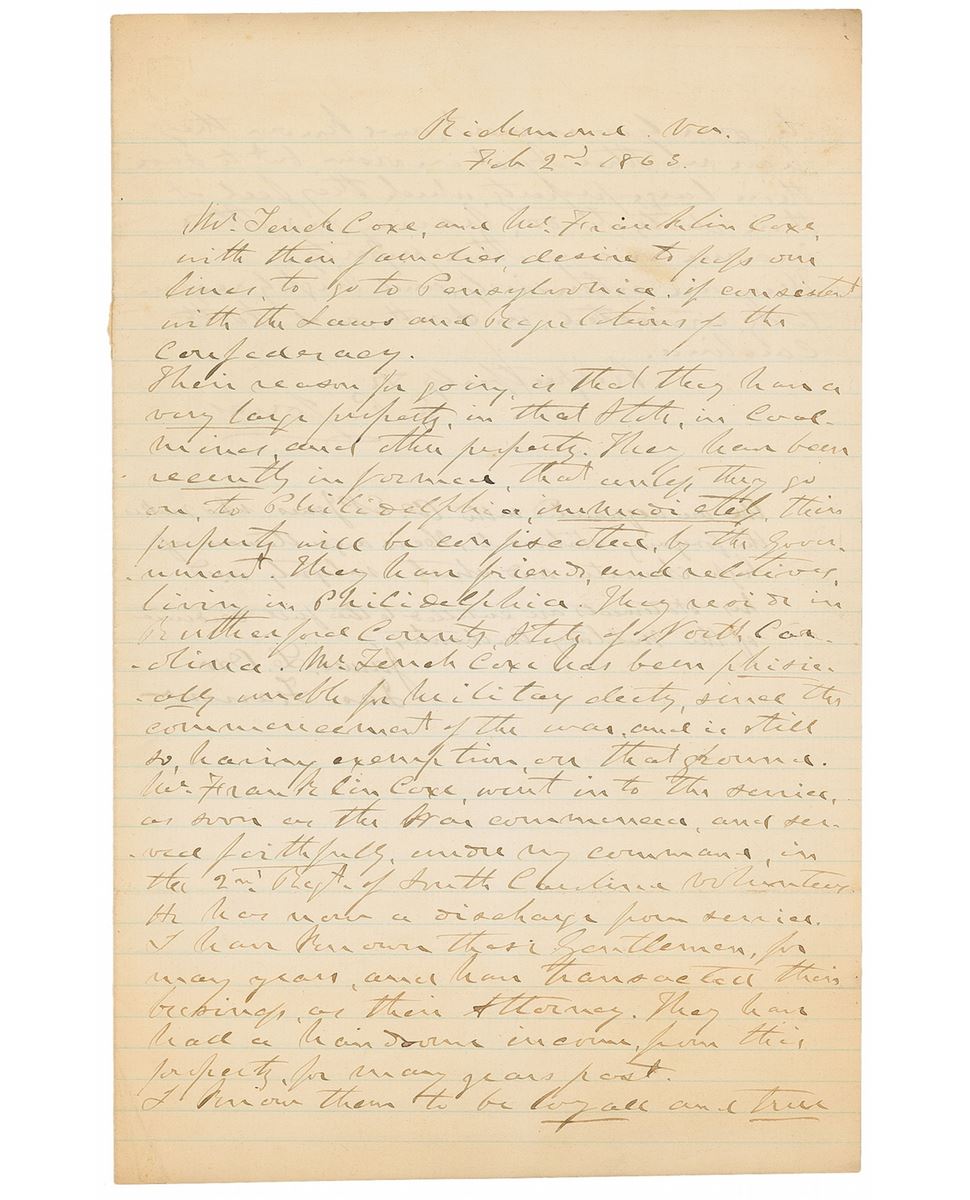 Richmond. Va.
Feb 2nd 1863.
Mr. Tench Coxe, and Mr. Franklin Coxe,
with their families, desire to pass our
lines, to go to Pensylvonia. if consistent
with the Laws and Regulations of the
Confederacy.
Their reason for going, is that they have a
very large property, in that State, in Coal-
mines, and other property. They have been
recently informed, that unless they go
on, to Philidelphia, immediately, their
property will be confiscated, by the Gover-
-nment. They have friends, and relatives,
living in Philidelphia. They reside in
Rutherford County, State of North Car-
-olina. Mr. Tench Coxe has been phisic-
-ally unable for military duty, since the
commencement of the war, and is still
so, having exemption, on that ground.
Mr. Franklin Coxe, went into the service,
as soon as the War commenced, and ser-
-ved faithfully, under my command, in
the 2nd Regt. of South Carolina volunteers.
He has now a discharge from service.
I have known these Gentlemen, for
many years, and have transacted their
buisings, as their Attorney. They have
had a handsome income, from this
property, for many years past.
I know them to be loyall and true